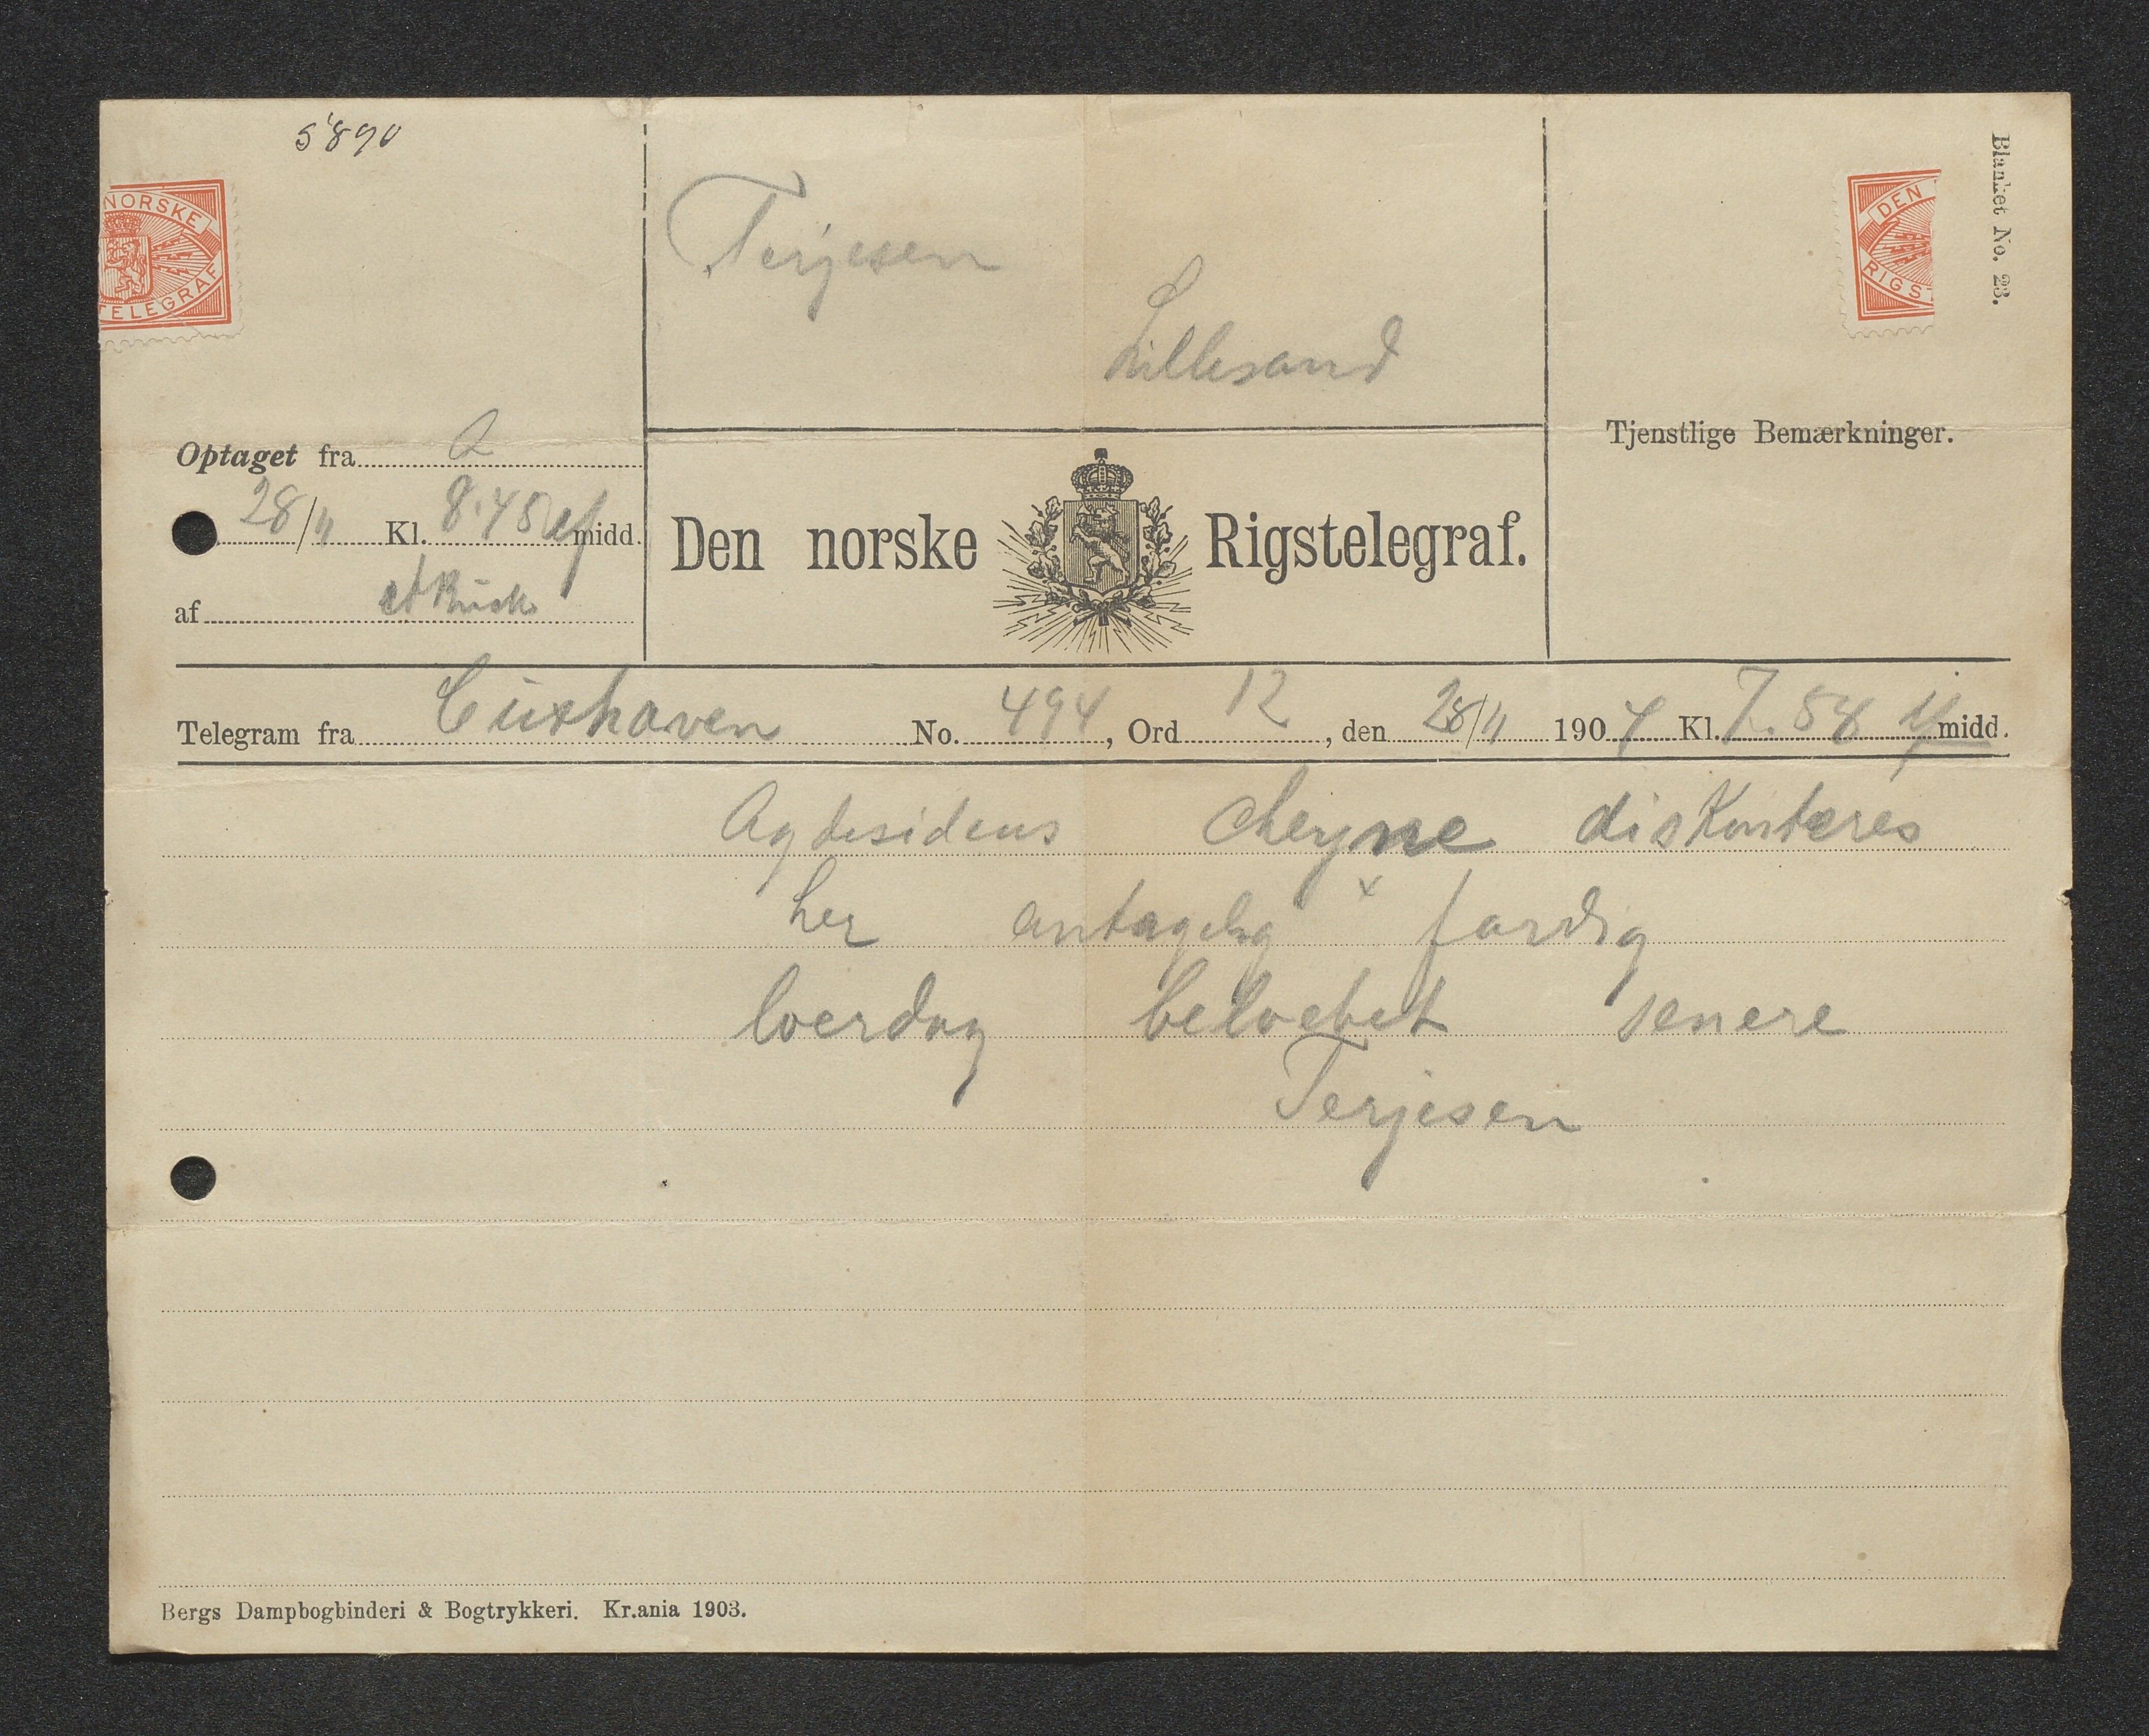 5890
NORSKE
TELEGRAF
DEN
RIGST
Blanket No. 23.
Terjesen
Lillesand
Optaget fra
28/11 Kl. 8.45 Ef midd.
af
Tjenstlige Bemærkninger.
Den norske Rigstelegraf.
Telegram fra Cuxhaven No. 494, Ord 12, den 28/11 1907 Kl. 7.54 Ef midd.
Agdesidens cheyne diskonteres
her antagelig x fardig
loerdag beloebet senere
Terjesen
Bergs Dampbogbinderi & Bogtrykkeri. Kr.ania 1903.